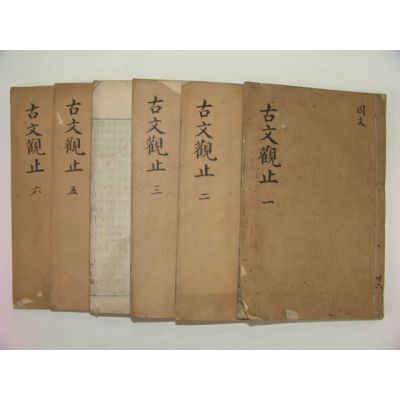 周文
古文觀止 一
古文觀止 二
古文觀止 三
古文觀止 五
古文觀止 六